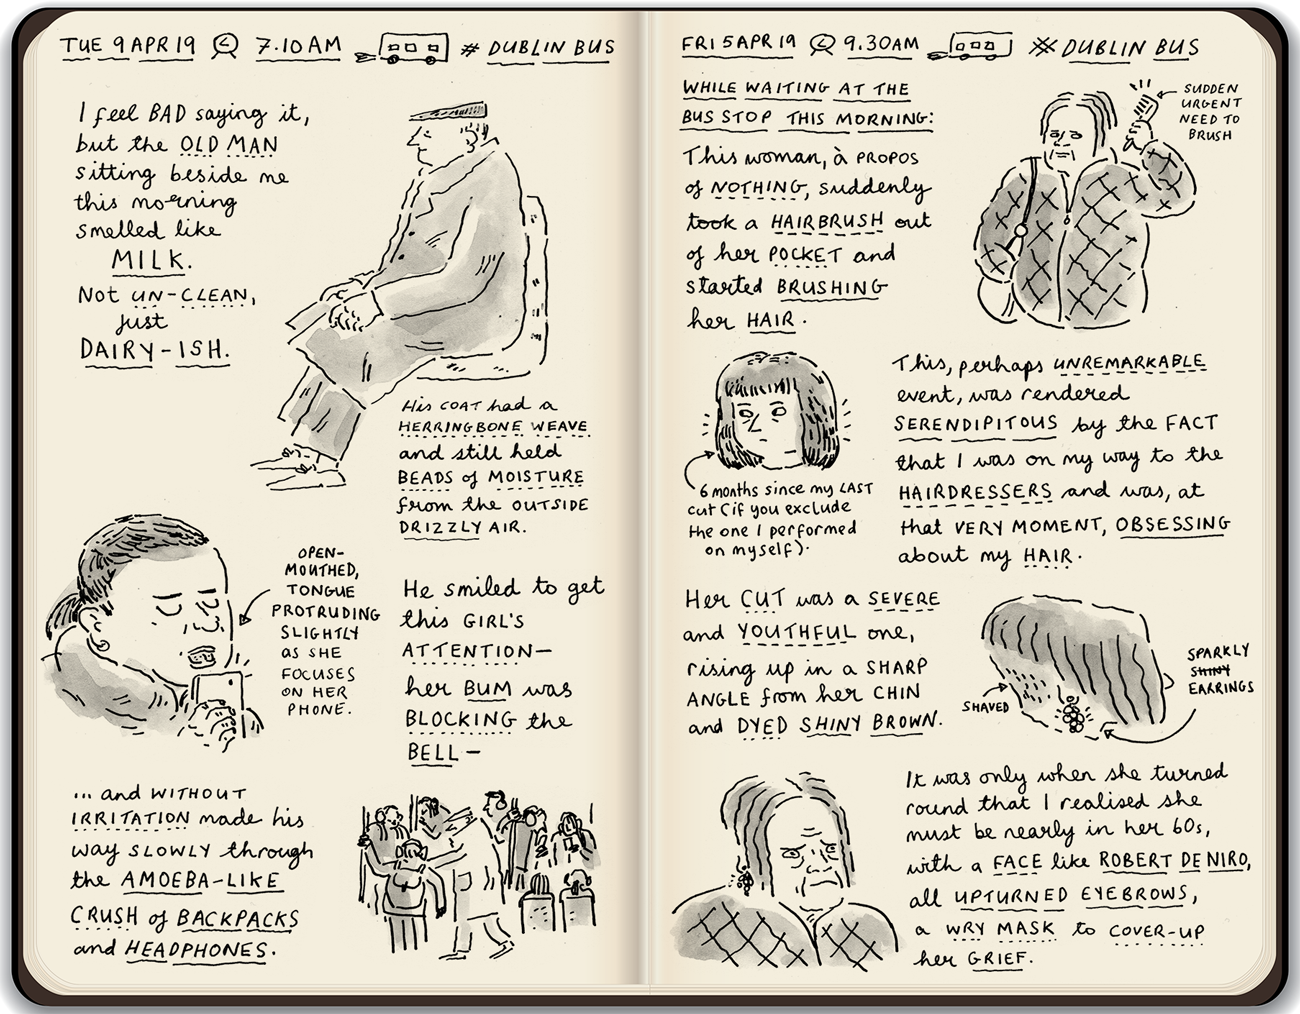 TUE 9 APR 19 7.10AM # DUBLIN BUS
I feel BAD saying it,
but the OLD MAN
sitting beside me
this morning
smelled like
MILK.
Not UN-CLEAN,
just
DAIRY-ISH.
His COAT had a
HERRINGBONE WEAVE
and still held
BEADS of MOISTURE
from the OUTSIDE
DRIZZLY AIR.
OPEN-
MOUTHED,
TONGUE
PROTRUDING
SLIGHTLY
as SHE
FOCUSES
ON HER
PHONE.
He smiled to get
this GIRL'S
ATTENTION—
her BUM was
BLOCKING the
BELL—
... and WITHOUT
IRRITATION made his
way SLOWLY through
the AMOEBA-LIKE
CRUSH of BACKPACKS
and HEADPHONES.
FRI 5 APR 19 9.30AM # DUBLIN BUS
WHILE WAITING AT THE
BUS STOP THIS MORNING:
This woman, à PROPOS
of NOTHING, suddenly
took a HAIRBRUSH out
of her POCKET and
started BRUSHING
her HAIR.
SUDDEN
URGENT
NEED TO
BRUSH
6 months since my LAST
cut (if you exclude
the one I performed
on myself).
This, perhaps UNREMARKABLE
event, was rendered
SERENDIPITOUS by the FACT
that I was on my way to the
HAIRDRESSERS and was, at
that VERY MOMENT, OBSESSING
about my HAIR.
Her CUT was a SEVERE
and YOUTHFUL one,
rising up in a SHARP
ANGLE from her CHIN
and DYED SHINY BROWN.
SHAVED
SPARKLY
SHINY
EARRINGS
It was only when she turned
round that I realised she
must be nearly in her 60s,
with a FACE like ROBERT DE NIRO,
all UPTURNED EYEBROWS,
a WRY MASK to COVER-UP
her GRIEF.